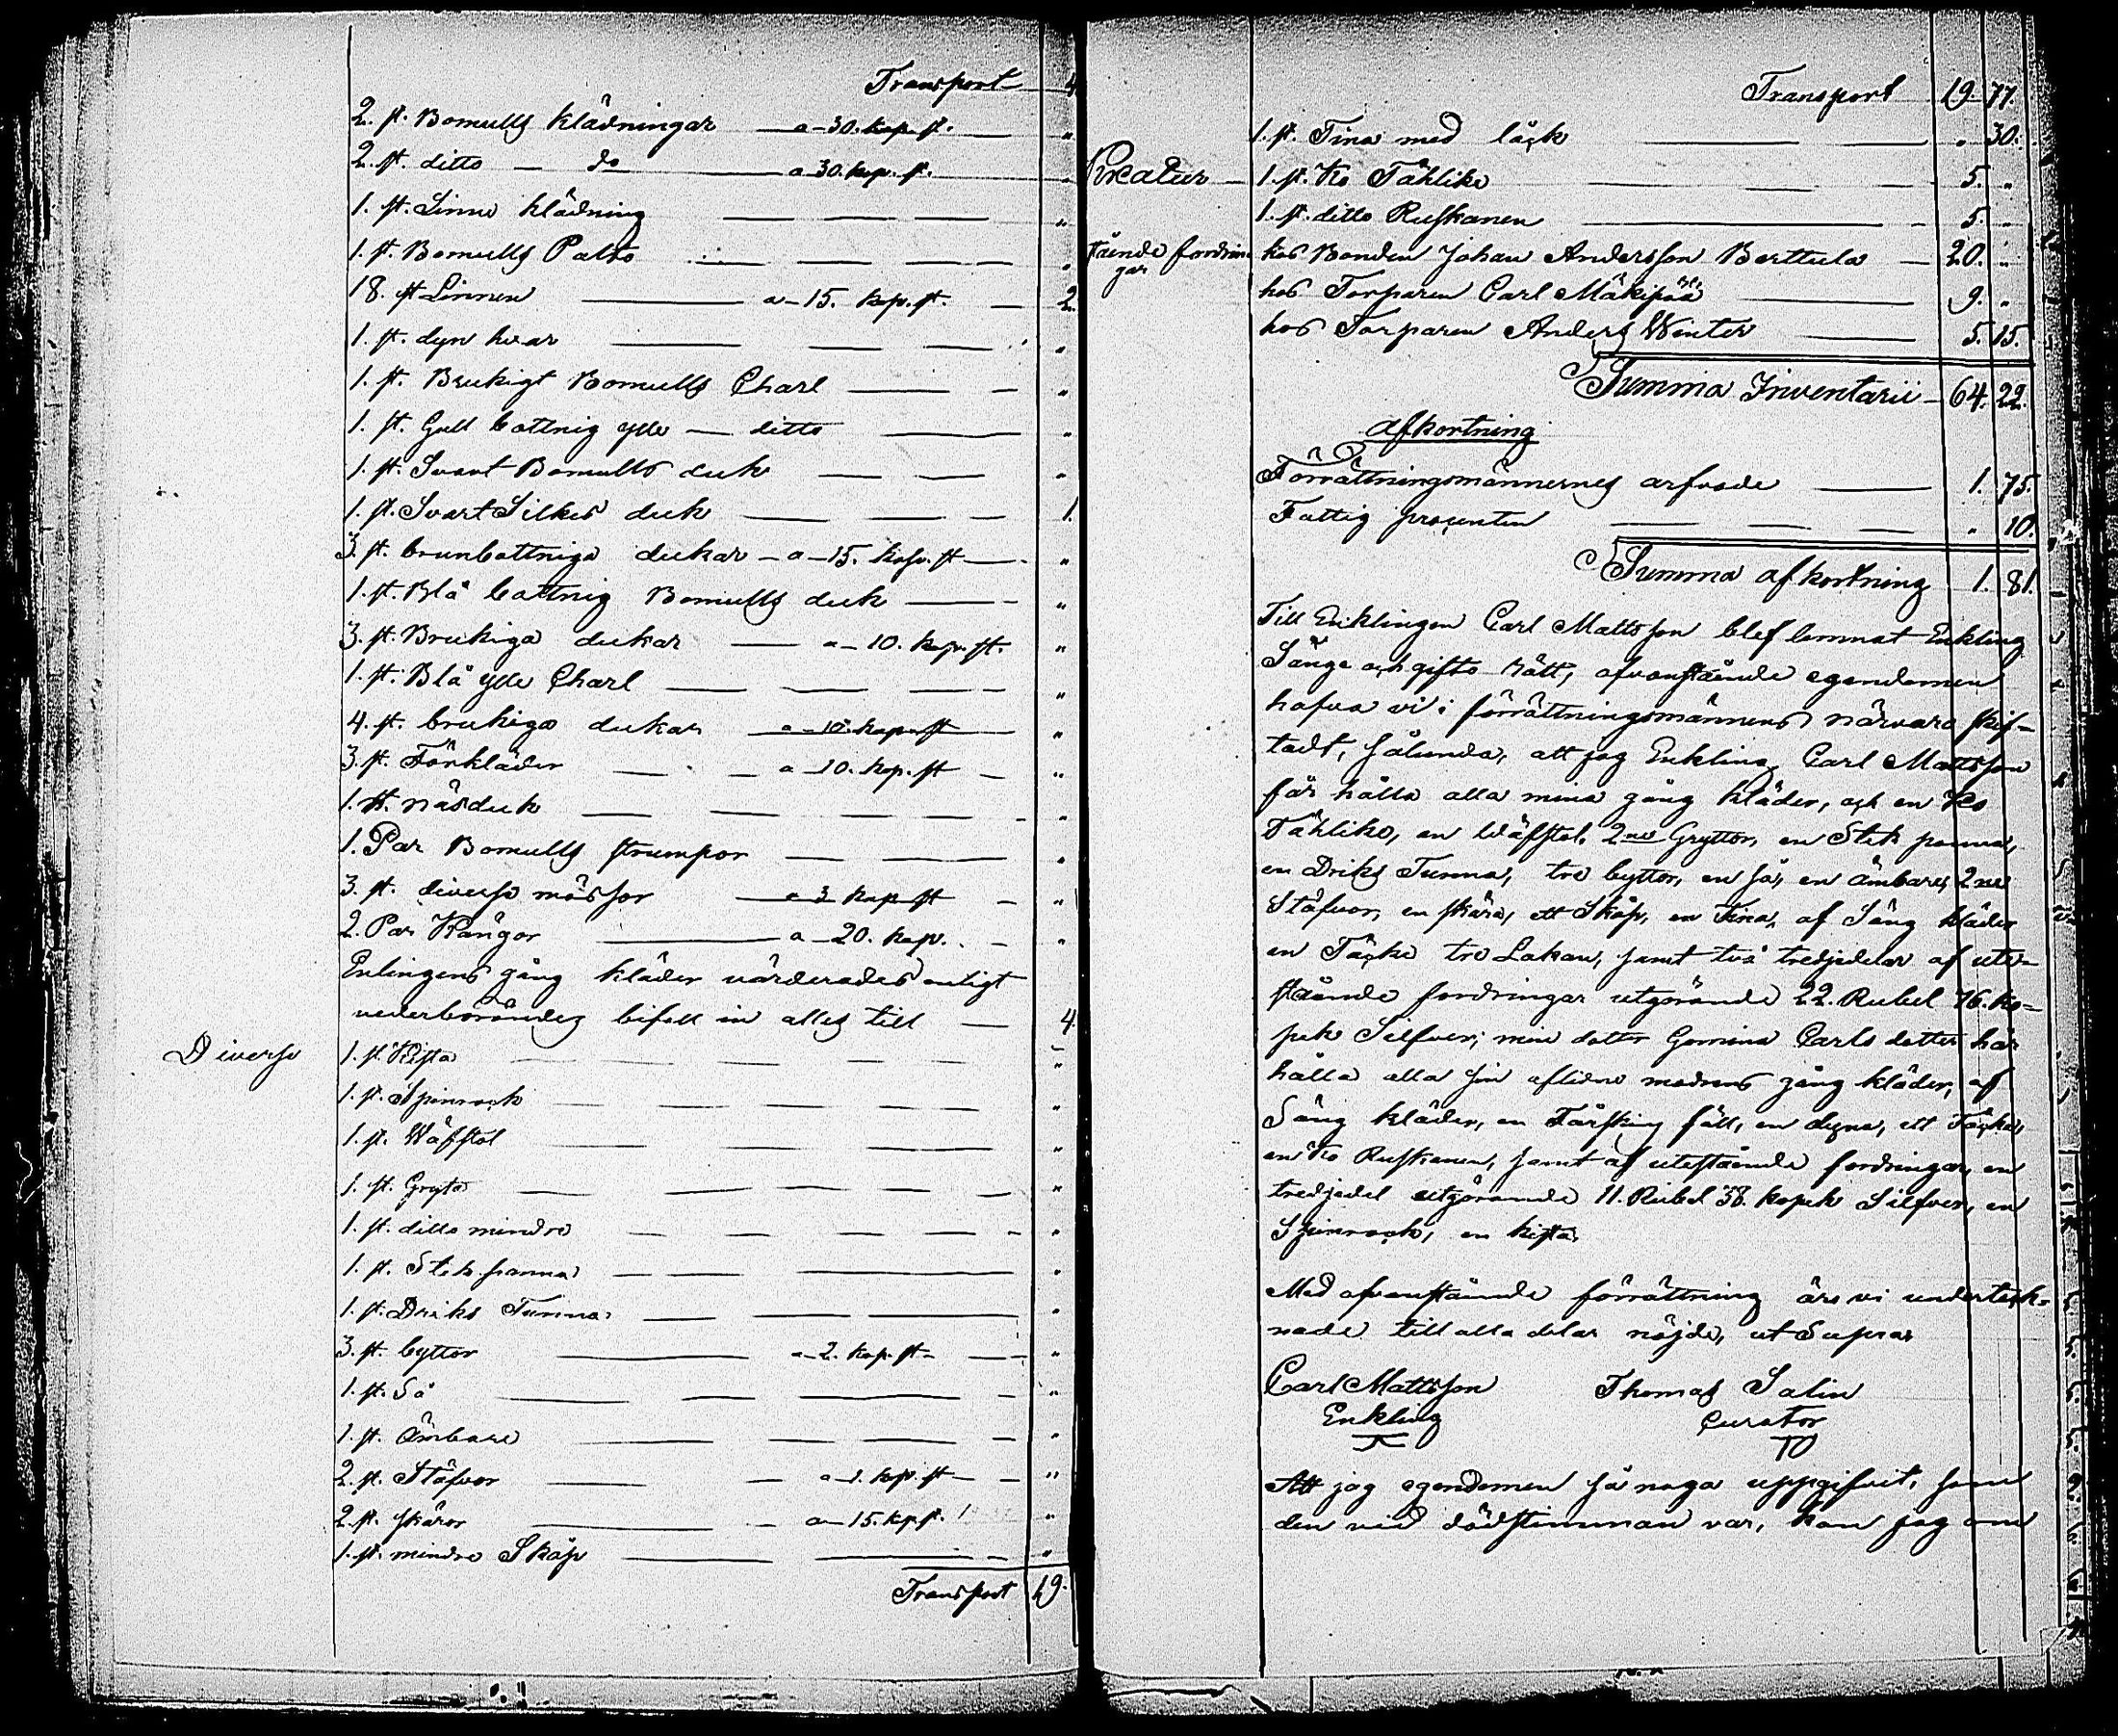 Transport 4
2. st. Bomulls klädningar a 30. kop. st. "
2. st. ditto do a 30. kop. st. "
1. st. Linne klädning "
1. st. Bomulls Palto "
18. st Linnen a 15. kop. st. 2.
1. st. dyn hvar "
1. st. Brukigt Bomulls Charl "
1. st. Gull bottnig ylle ditto "
1. st. Svart Bomulls duk "
1. st. Svart Silkes duk 1.
3. st. brunbottniga dukar a 15. kop. st "
1. st. Blå bottnig Bomulls duk "
3. st. Brukiga dukar a 10. kop. st. "
1. st. Blå ylle Charl "
4. st. brukiga dukar a 10. kop. st "
3. st. Förkläder a 10. kop. st "
1. st. näsduk "
1. Par Bomulls strumpor "
3. st. diverse mössor a 3 kop st "
2. Par Kängor a 20. kop. "
Enlingens gång kläder värderades enligt
vederbörandes bifall in alles till 4.
Diverse 1. st. Kista "
1. st. Spinrock "
1. st. Wäfstol "
1. st. Gryta "
1. st. ditto mindre "
1. st. Stek panna "
1. st. Driks Tunna "
3. st. byttor a 2. kop. st "
1. st. Så "
1. st. Ämbare "
2. st. Stäfvor a 1. kop. st "
2. st. skäror a 15. kop. st. "
1. st. mindre Skåp "
Transport 19.
Transport 19. 77.
1. st. Tina med låck " 30.
Kreatur 1. st. Ko Tähliko 5. "
1. st. ditto Ruskanen 5. "
stående fordrin- hos Bonden Johan Andersson Berttula 20. "
gar
hos Torparen Carl Mäkipää 9. "
hos Torparen Anders Winter 5. 15.
Summa Inventarii 64. 22.
afkortning
Förrättningsmännernes arfvode 1. 75.
Fattig procenten " 10.
Summa afkortning 1. 81.
Till Enklingen Carl Mattsson blef lemnat Enkling
Sänge och gifto rätt, ofvanstående egendomen
hafva vi i förrättningsmännens närvaro skif-
tadt, sålunda, att jag Enkling Carl Mattsson
får hålla alla mina gång kläder, och en Ko
Tähliko, en Wäfstol, 2ne Gryttor, en Stek panna,
en Driks Tunna, tre byttor, en så, en ämbare, 2ne
Stäfvor, en skära, ett Skåp, en Tina, af Säng kläder
en Täcke tre Lakan, samt två tredjedelar af ute-
stående fordringar utgörande 22. Rubel 76. ko-
pek Silfver; min dotter Gomina Carls dotter här
hålla alla sin aflidne modrens gång kläder, af
Säng kläder, en Fårskins fäll, en dyna, ett Täcke,
en Ko Ruskanen, samt af utestående fordringar, en
tredjedel utgörande 11. Rubel 38. kopek Silfver, en
Spinrock, en kista.
Med ofvanstående förrättning äro vi underteck-
nade till alla delar nöjde, ut Supra
Carl Mattsson Thomas Salin
Enkling Curator
Att jag egendomen så noga uppgifvit, som
den vid dödstimman var, kan jag om